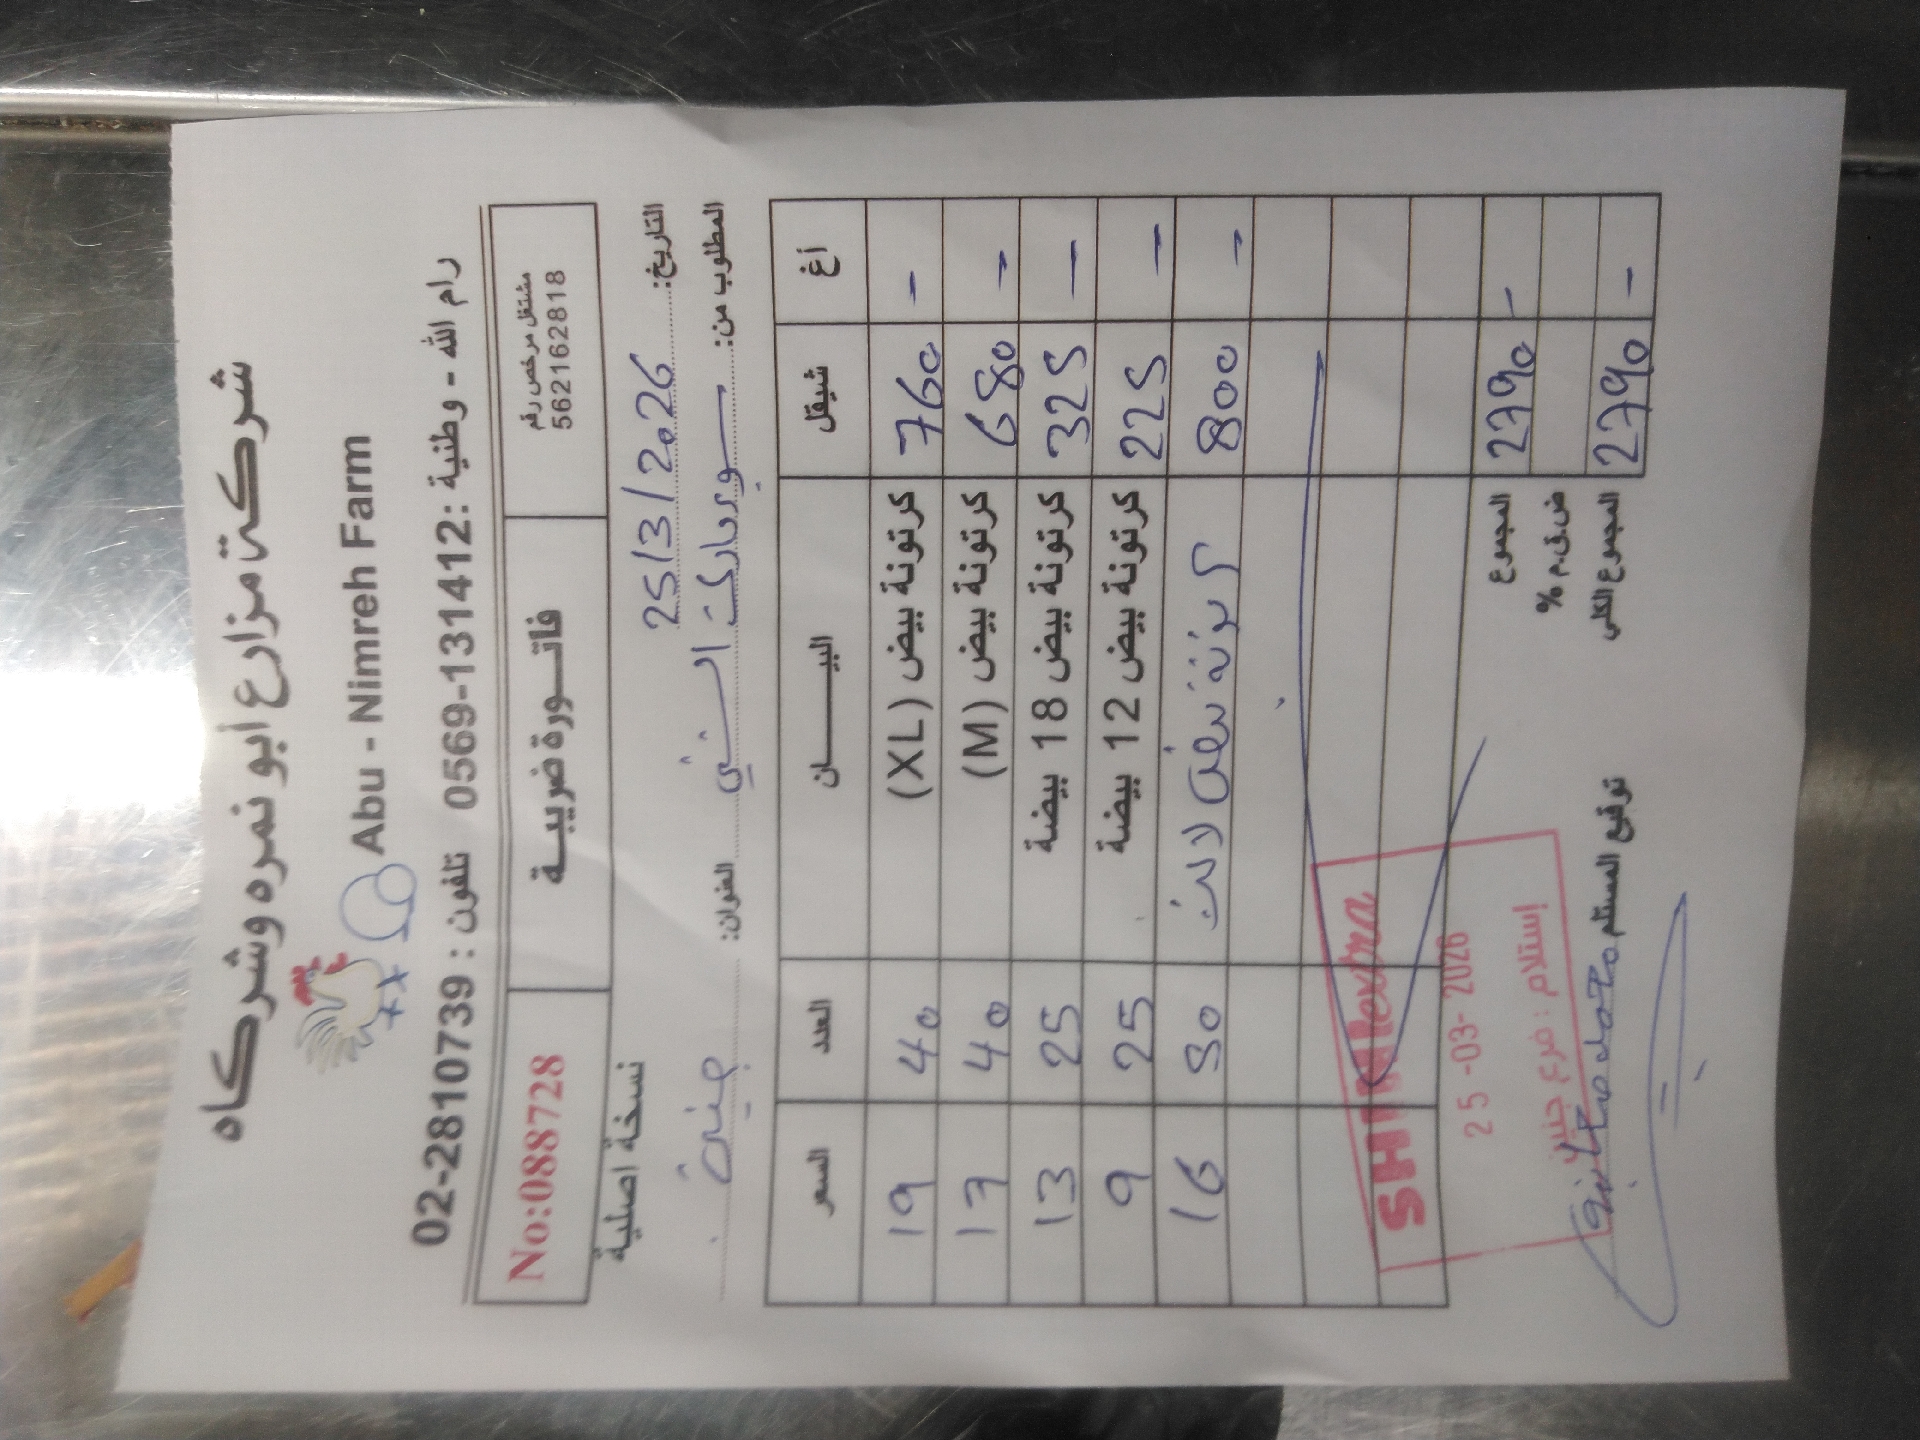 شركة مزارع أبو نمره وشركاه
Abu - Nimreh Farm
رام الله - وطنية : 0569-131412 تلفون : 02-2810739
مشتغل مرخص رقم 562162818
فاتورة ضريبية
No:088728
التاريخ: 25/3/2026
نسخة اصلية
المطلوب من: سوبرماركت الشني العنوان: جنين
أغ شيقل البيان العدد السعر
- 760 كرتونة بيض (XL) 40 19
- 680 كرتونة بيض (M) 40 17
- 325 كرتونة بيض 18 بيضة 25 13
- 225 كرتونة بيض 12 بيضة 25 9
- 800 كرتونة بيض لارت 50 16
SHINI extra
25-03-2026
إستلام : فرع جنين
المجموع 2790 -
ض.ق.م %
المجموع الكلي 2790 -
توقيع المستلم محمد